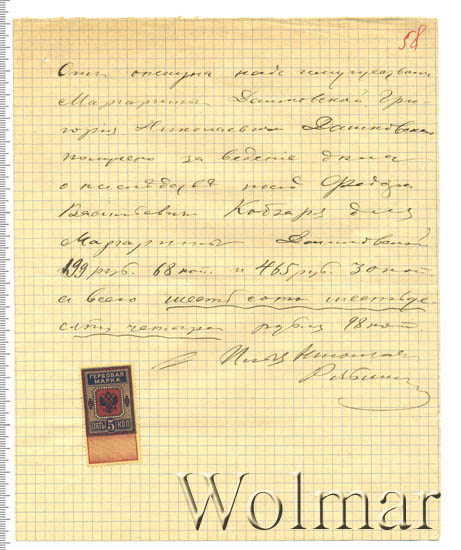 58
Отъ опекуна надъ имуществомъ
Маргариты Дашковской, Гри-
горія Николаевича Дашковскаго
получено за веденіе дѣла
о наслѣдствѣ Федора
Васильевича Кобзаря для
Маргариты Дашковской
199 руб. 68 коп. и 465 руб. 30 коп.
а всего шестьсотъ шестьде-
сятъ четыре рубля 98 коп.
Николай
ГЕРБОВАЯ
МАРКА
ПЯТЬ 5 КОП
Wolmar